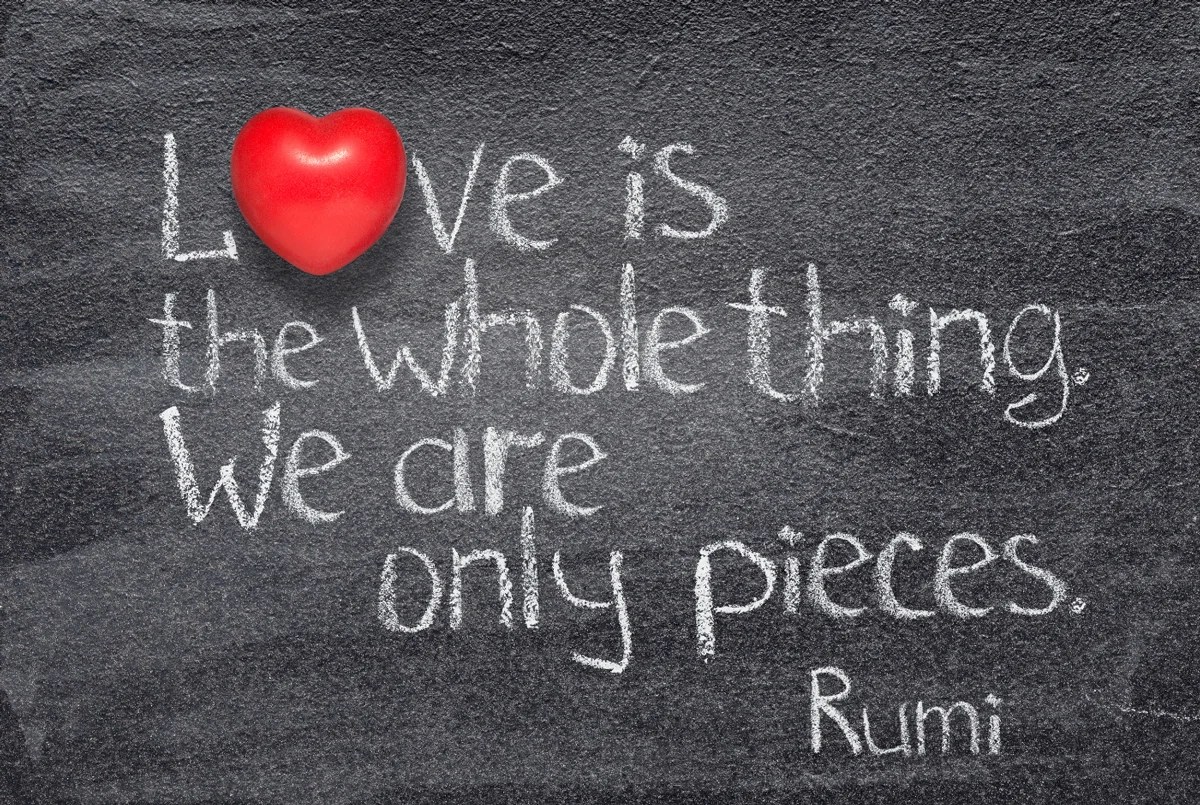 Love is
the whole thing.
We are
only pieces.
Rumi